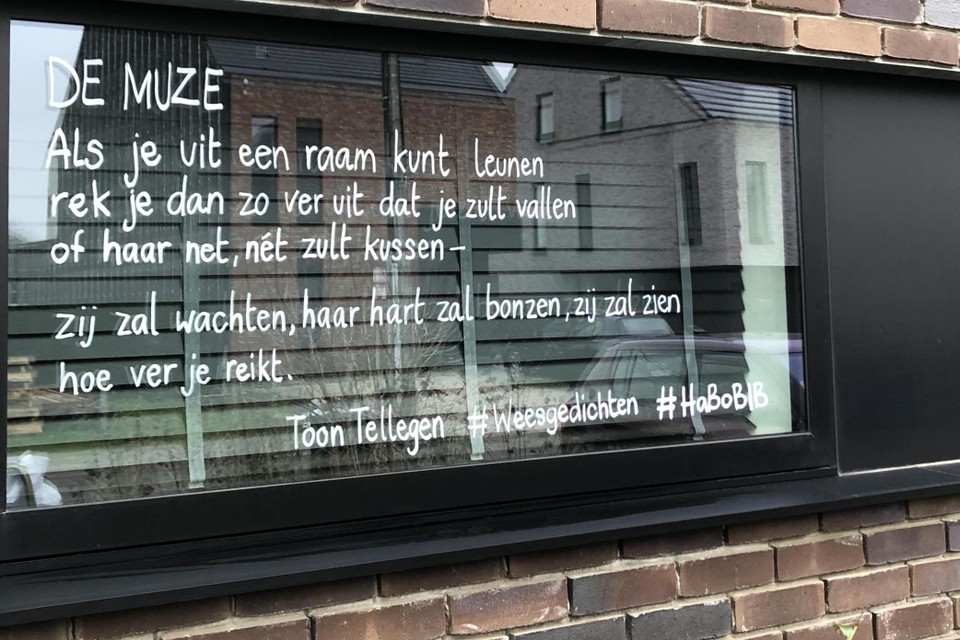 DE MUZE
Als je uit een raam kunt leunen
rek je dan zo ver uit dat je zult vallen
of haar net, nét zult kussen–
zij zal wachten, haar hart zal bonzen, zij zal zien
hoe ver je reikt.
Toon Tellegen #Weesgedichten #HaBoBIB